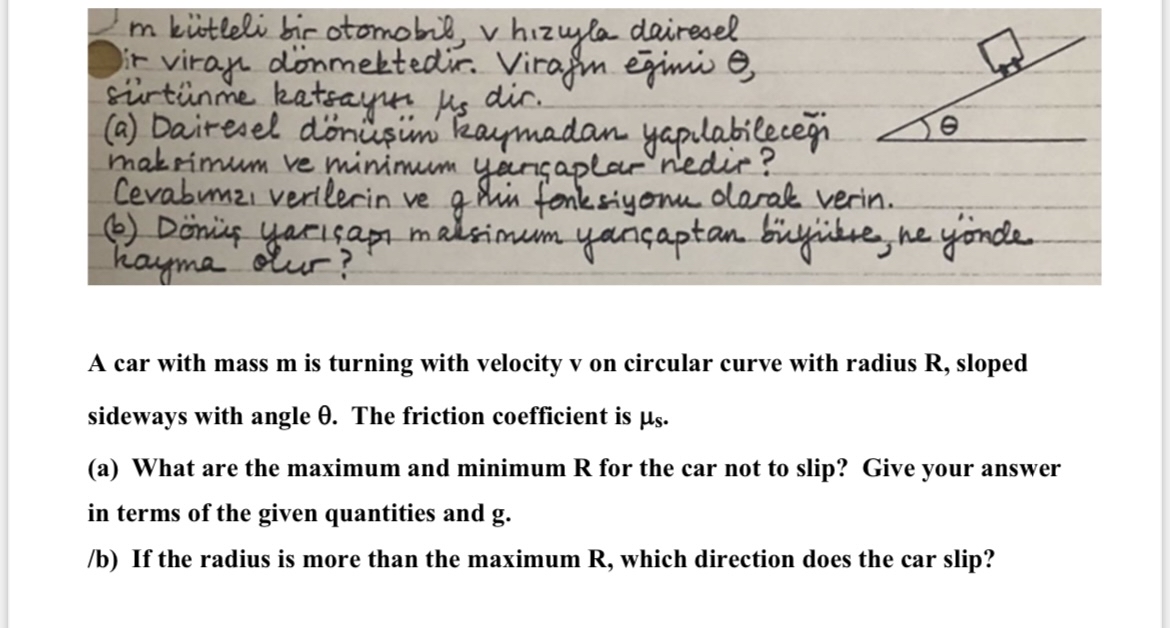 m kütleli bir otomobil, v hızıyla dairesel
bir virajı dönmektedir. Virajın eğimi θ,
sürtünme katsayısı μs dir.
(a) Dairesel dönüşün kaymadan yapılabileceği
maksimum ve minimum yarıçaplar nedir?
Cevabınızı verilerin ve g nin fonksiyonu olarak verin.
(b) Dönüş yarıçapı maksimum yarıçaptan büyükse, ne yönde
kayma olur?
θ
A car with mass m is turning with velocity v on circular curve with radius R, sloped
sideways with angle θ. The friction coefficient is μs.
(a) What are the maximum and minimum R for the car not to slip? Give your answer
in terms of the given quantities and g.
/b) If the radius is more than the maximum R, which direction does the car slip?